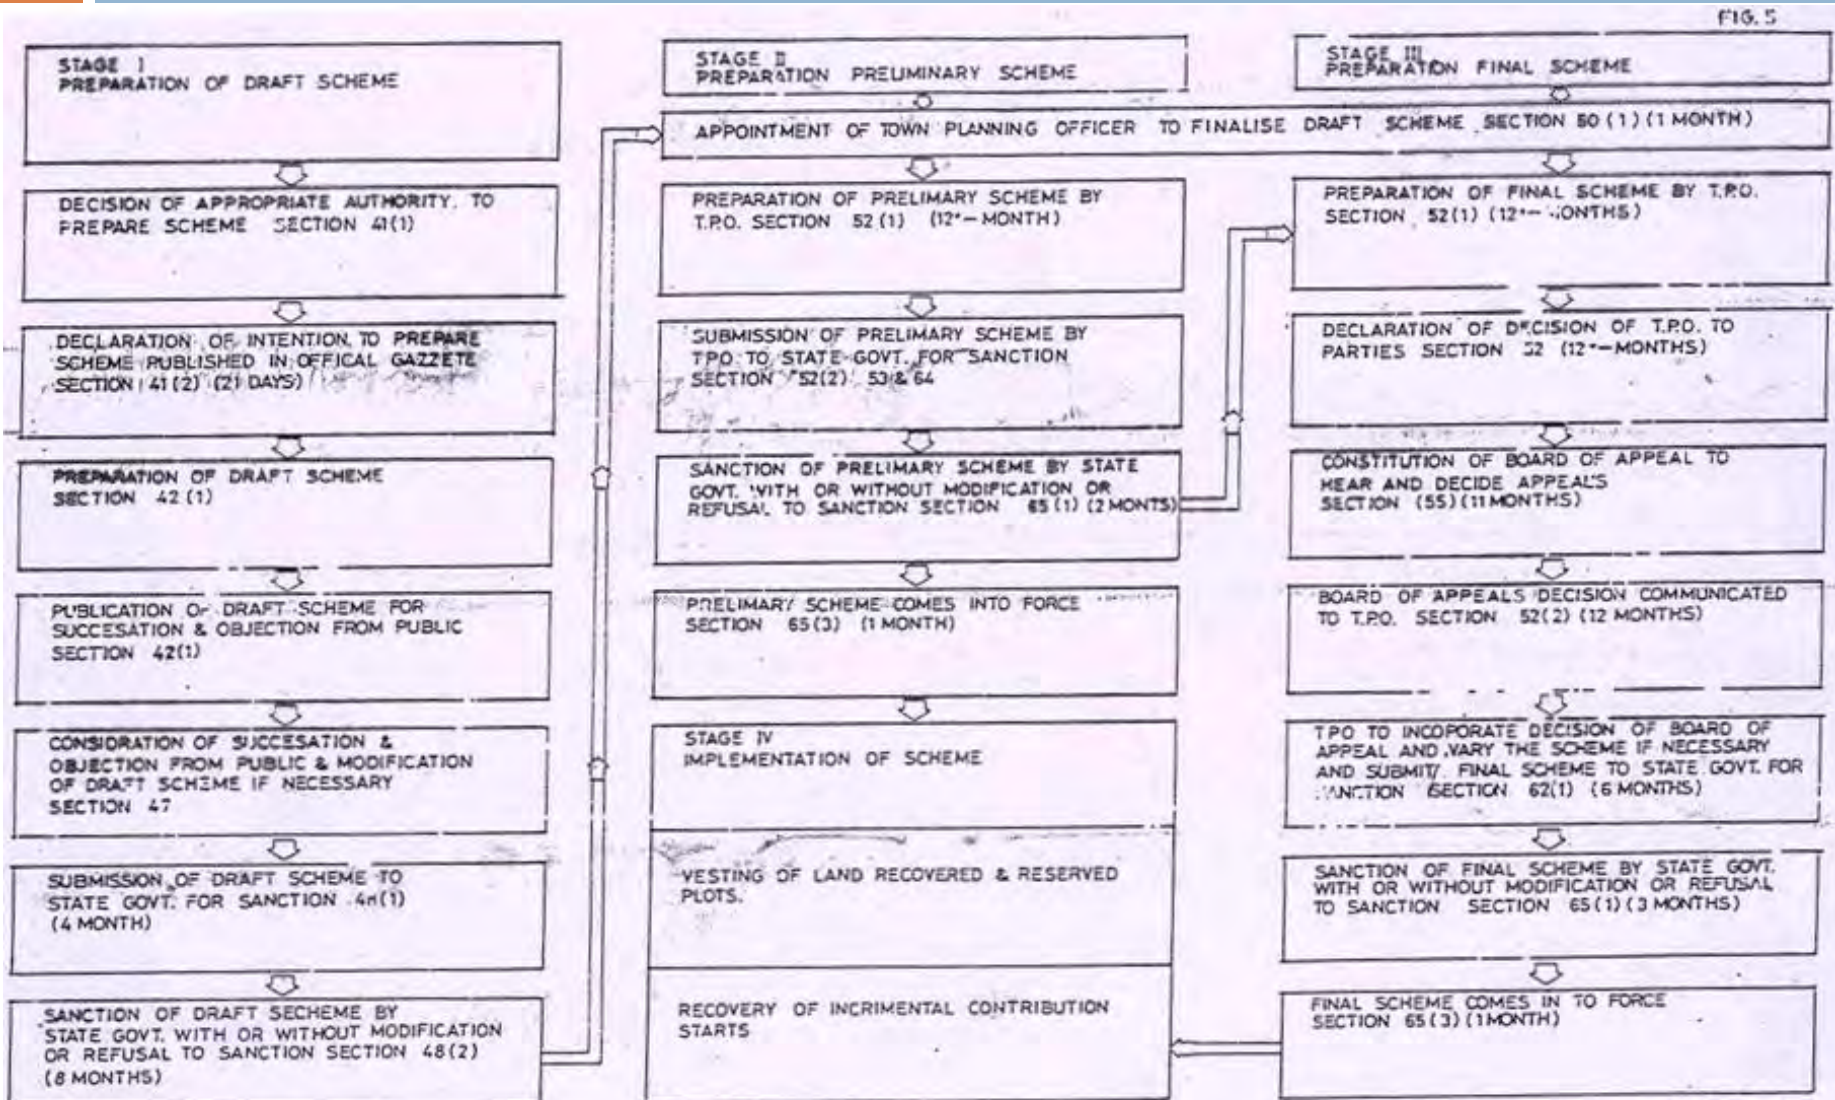 FIG. 5
STAGE I
PREPARATION OF DRAFT SCHEME
DECISION OF APPROPRIATE AUTHORITY. TO
PREPARE SCHEME SECTION 41(1)
DECLARATION OF INTENTION TO PREPARE
SCHEME PUBLISHED IN OFFICAL GAZZETE
SECTION 41(2) (21 DAYS)
PREPARATION OF DRAFT SCHEME
SECTION 42(1)
PUBLICATION OF DRAFT SCHEME FOR
SUCCESATION & OBJECTION FROM PUBLIC
SECTION 42(1)
CONSIDRATION OF SUCCESATION &
OBJECTION FROM PUBLIC & MODIFICATION
OF DRAFT SCHEME IF NECESSARY
SECTION 47
SUBMISSION OF DRAFT SCHEME TO
STATE GOVT. FOR SANCTION
(4 MONTH)
SANCTION OF DRAFT SECHEME BY
STATE GOVT. WITH OR WITHOUT MODIFICATION
OR REFUSAL TO SANCTION SECTION 48(2)
(8 MONTHS)
STAGE II
PREPARATION PRELIMINARY SCHEME
APPOINTMENT OF TOWN PLANNING OFFICER TO FINALISE DRAFT SCHEME SECTION 50 (1) (1 MONTH)
PREPARATION OF PRELIMARY SCHEME BY
T.P.O. SECTION 52(1) (12*-MONTH)
SUBMISSION OF PRELIMARY SCHEME BY
T.P.O. TO STATE GOVT. FOR SANCTION
SECTION 52(2) 53 & 64
SANCTION OF PRELIMARY SCHEME BY STATE
GOVT. WITH OR WITHOUT MODIFICATION OR
REFUSAL TO SANCTION SECTION 65(1) (2 MONTS)
PRELIMARY SCHEME COMES INTO FORCE
SECTION 65(3) (1 MONTH)
STAGE IV
IMPLEMENTATION OF SCHEME
VESTING OF LAND RECOVERED & RESERVED
PLOTS.
RECOVERY OF INCRIMENTAL CONTRIBUTION
STARTS
STAGE III
PREPARATION FINAL SCHEME
PREPARATION OF FINAL SCHEME BY T.P.O.
SECTION 52(1) (12*-MONTHS)
DECLARATION OF DECISION OF T.P.O. TO
PARTIES SECTION 52 (12*-MONTHS)
CONSTITUTION OF BOARD OF APPEAL TO
HEAR AND DECIDE APPEALS
SECTION (55) (11 MONTHS)
BOARD OF APPEALS DECISION COMMUNICATED
TO T.P.O. SECTION 52(2) (12 MONTHS)
TPO TO INCOPORATE DECISION OF BOARD OF
APPEAL AND VARY THE SCHEME IF NECESSARY
AND SUBMIT FINAL SCHEME TO STATE GOVT. FOR
SANCTION SECTION 62(1) (6 MONTHS)
SANCTION OF FINAL SCHEME BY STATE GOVT.
WITH OR WITHOUT MODIFICATION OR REFUSAL
TO SANCTION SECTION 65(1) (3 MONTHS)
FINAL SCHEME COMES IN TO FORCE
SECTION 65(3) (1 MONTH)